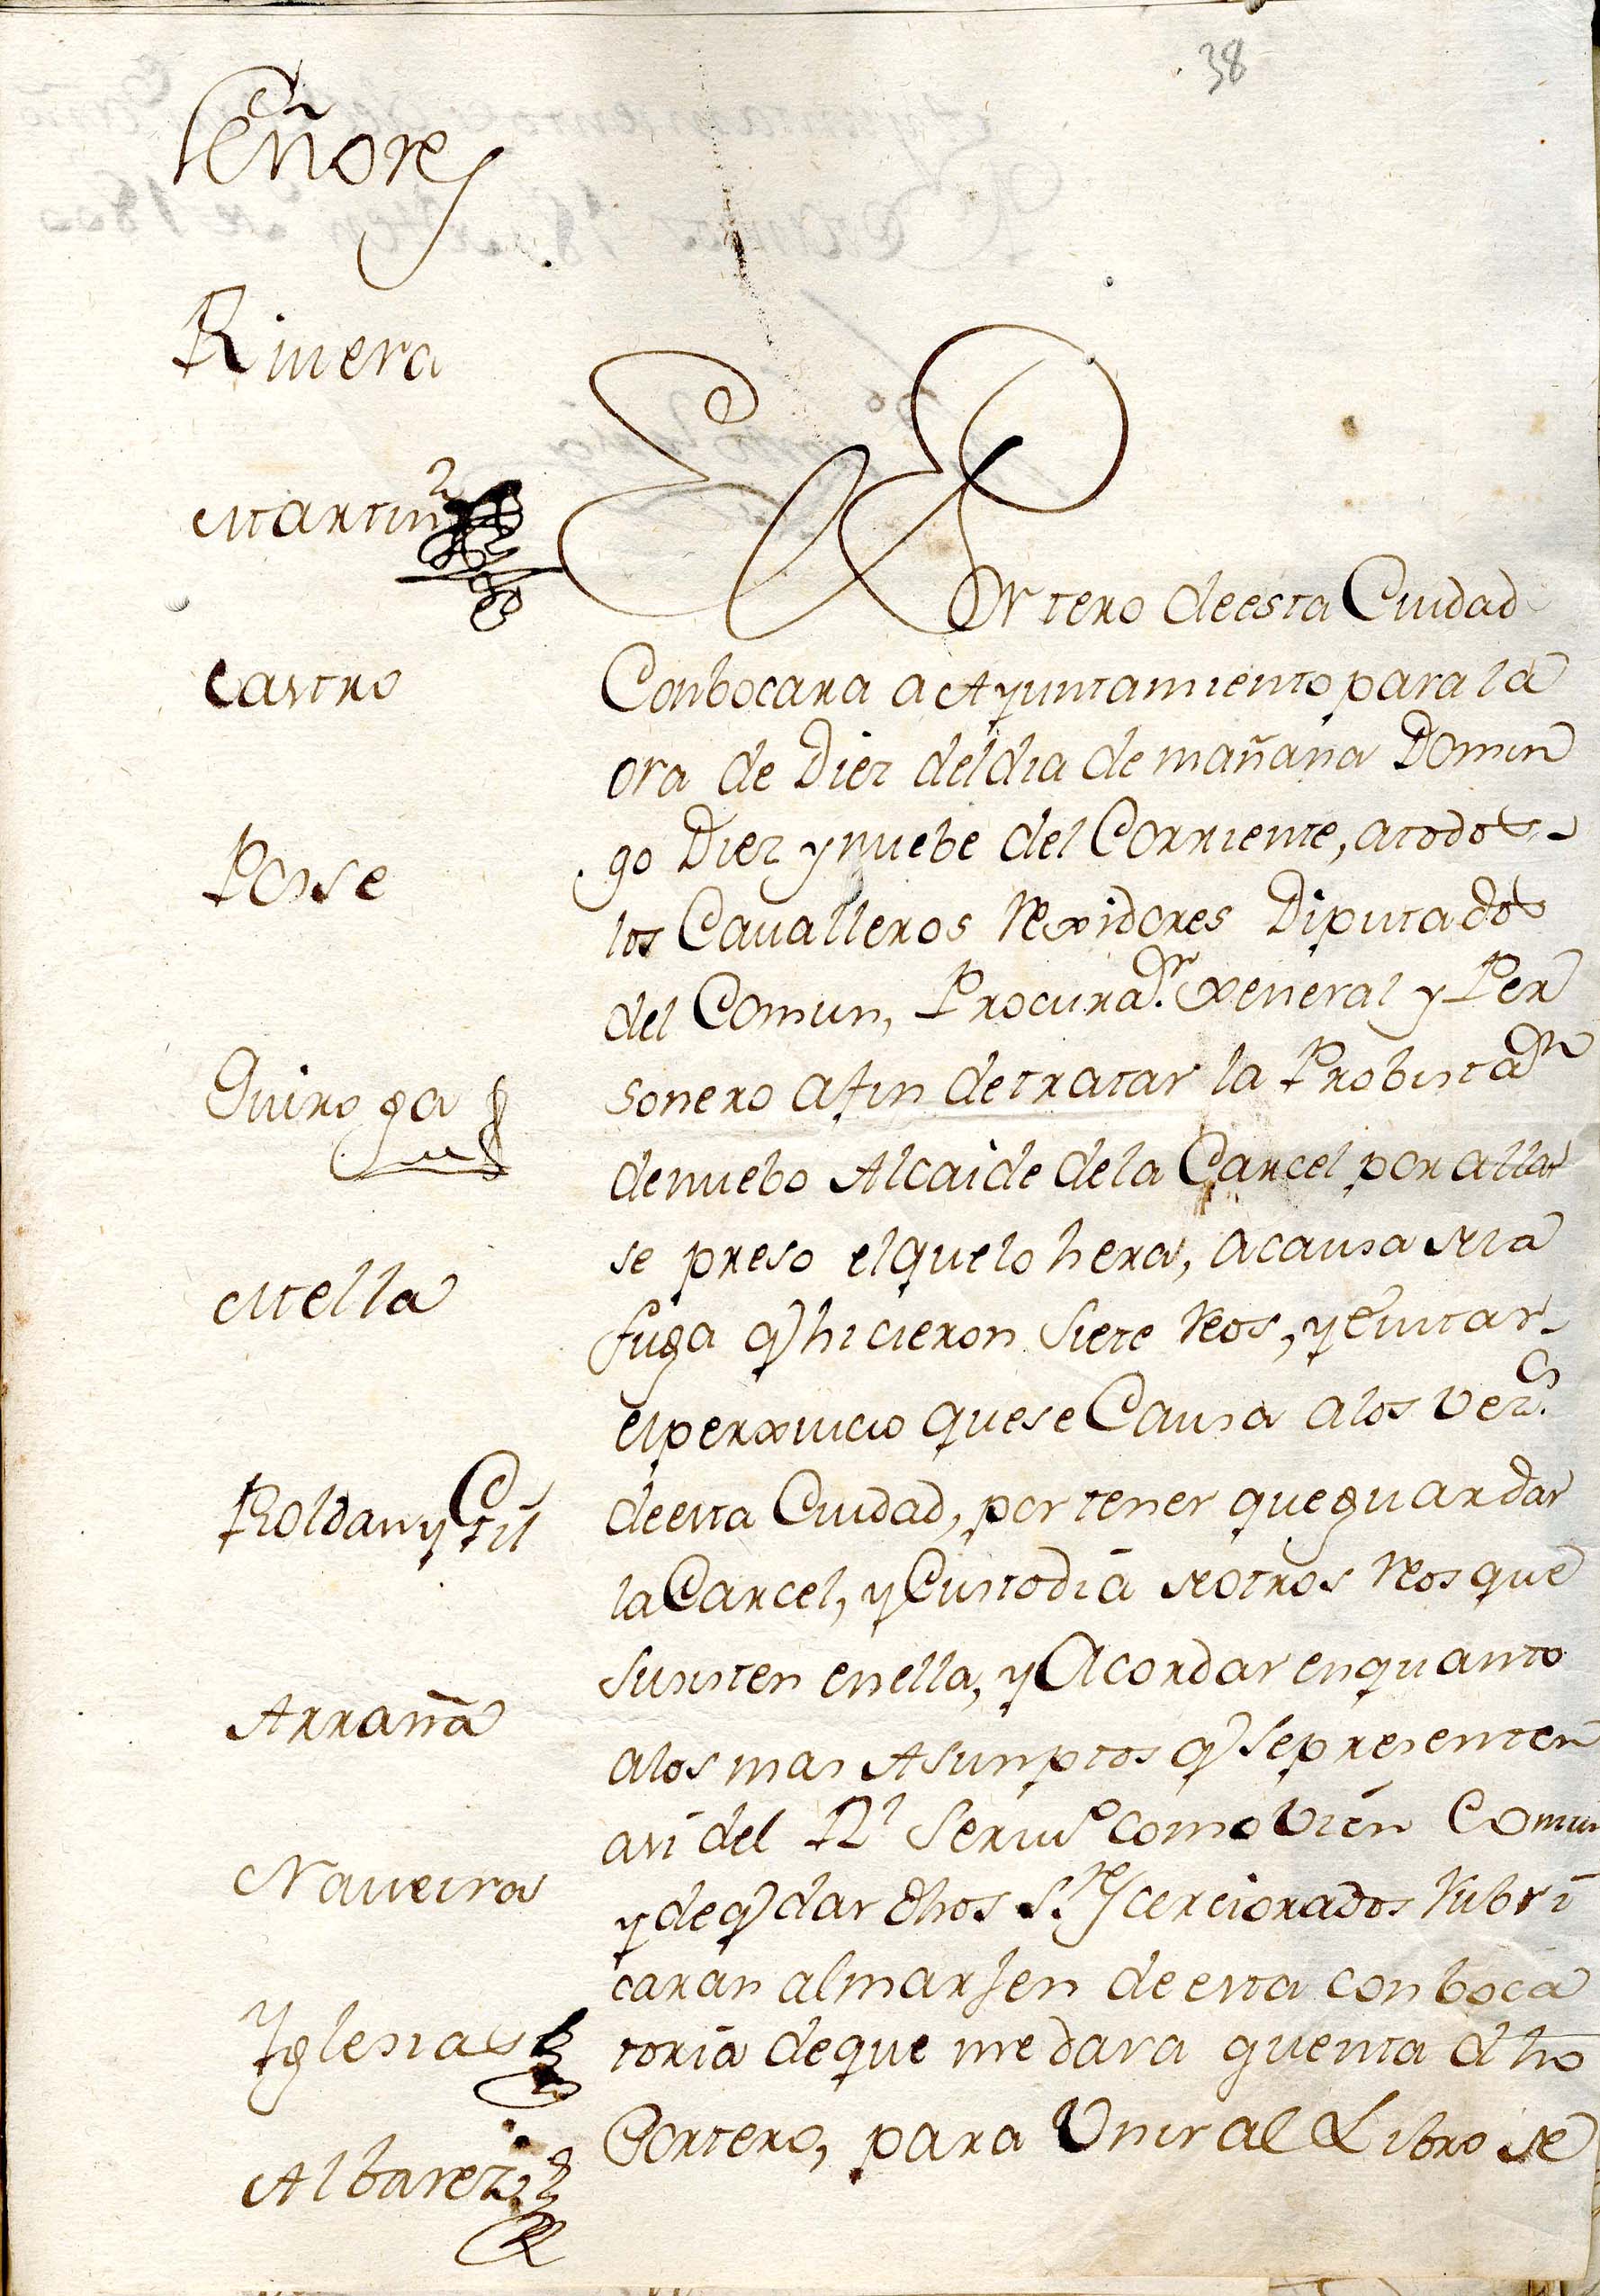 38
Señores
Rivera
Martinz
Castro
Posse
Quiroga
Mella
Roldan y Gil
Arrañã
Naveira
Yglesias
Albarez
El Portero de esta Ciudad
Conbocara a Ayuntamiento para la
ora de Diez del dia de mañana Domin
go Diez y nuebe del Corriente, a todos
los Cavalleros Rexidores Diputados
del Comun, Procurador. Xeneral y Per
sonero a fin de tratar la Probistaon
de nuebo Alcaide de la Carcel por allar
se preso el que lo hera, a causa de la
fuga q hicieron Siete Reos, y Evitar
el perxuicio que se Causa a los Vezos.
de esta Ciudad, por tener que guardar
la Carcel, y Custodiã de otros Reos que
Sunsten en ella, y Acordar en quanto
a los mas Asumptos q Se presenten
asi del Rl Servio como Vien Comun
y de q dar dhos Sres cerciorados Rubri
caran al marjen de esta conboca
toria de que me dara quenta dho
Portero, para Unir al Libro de